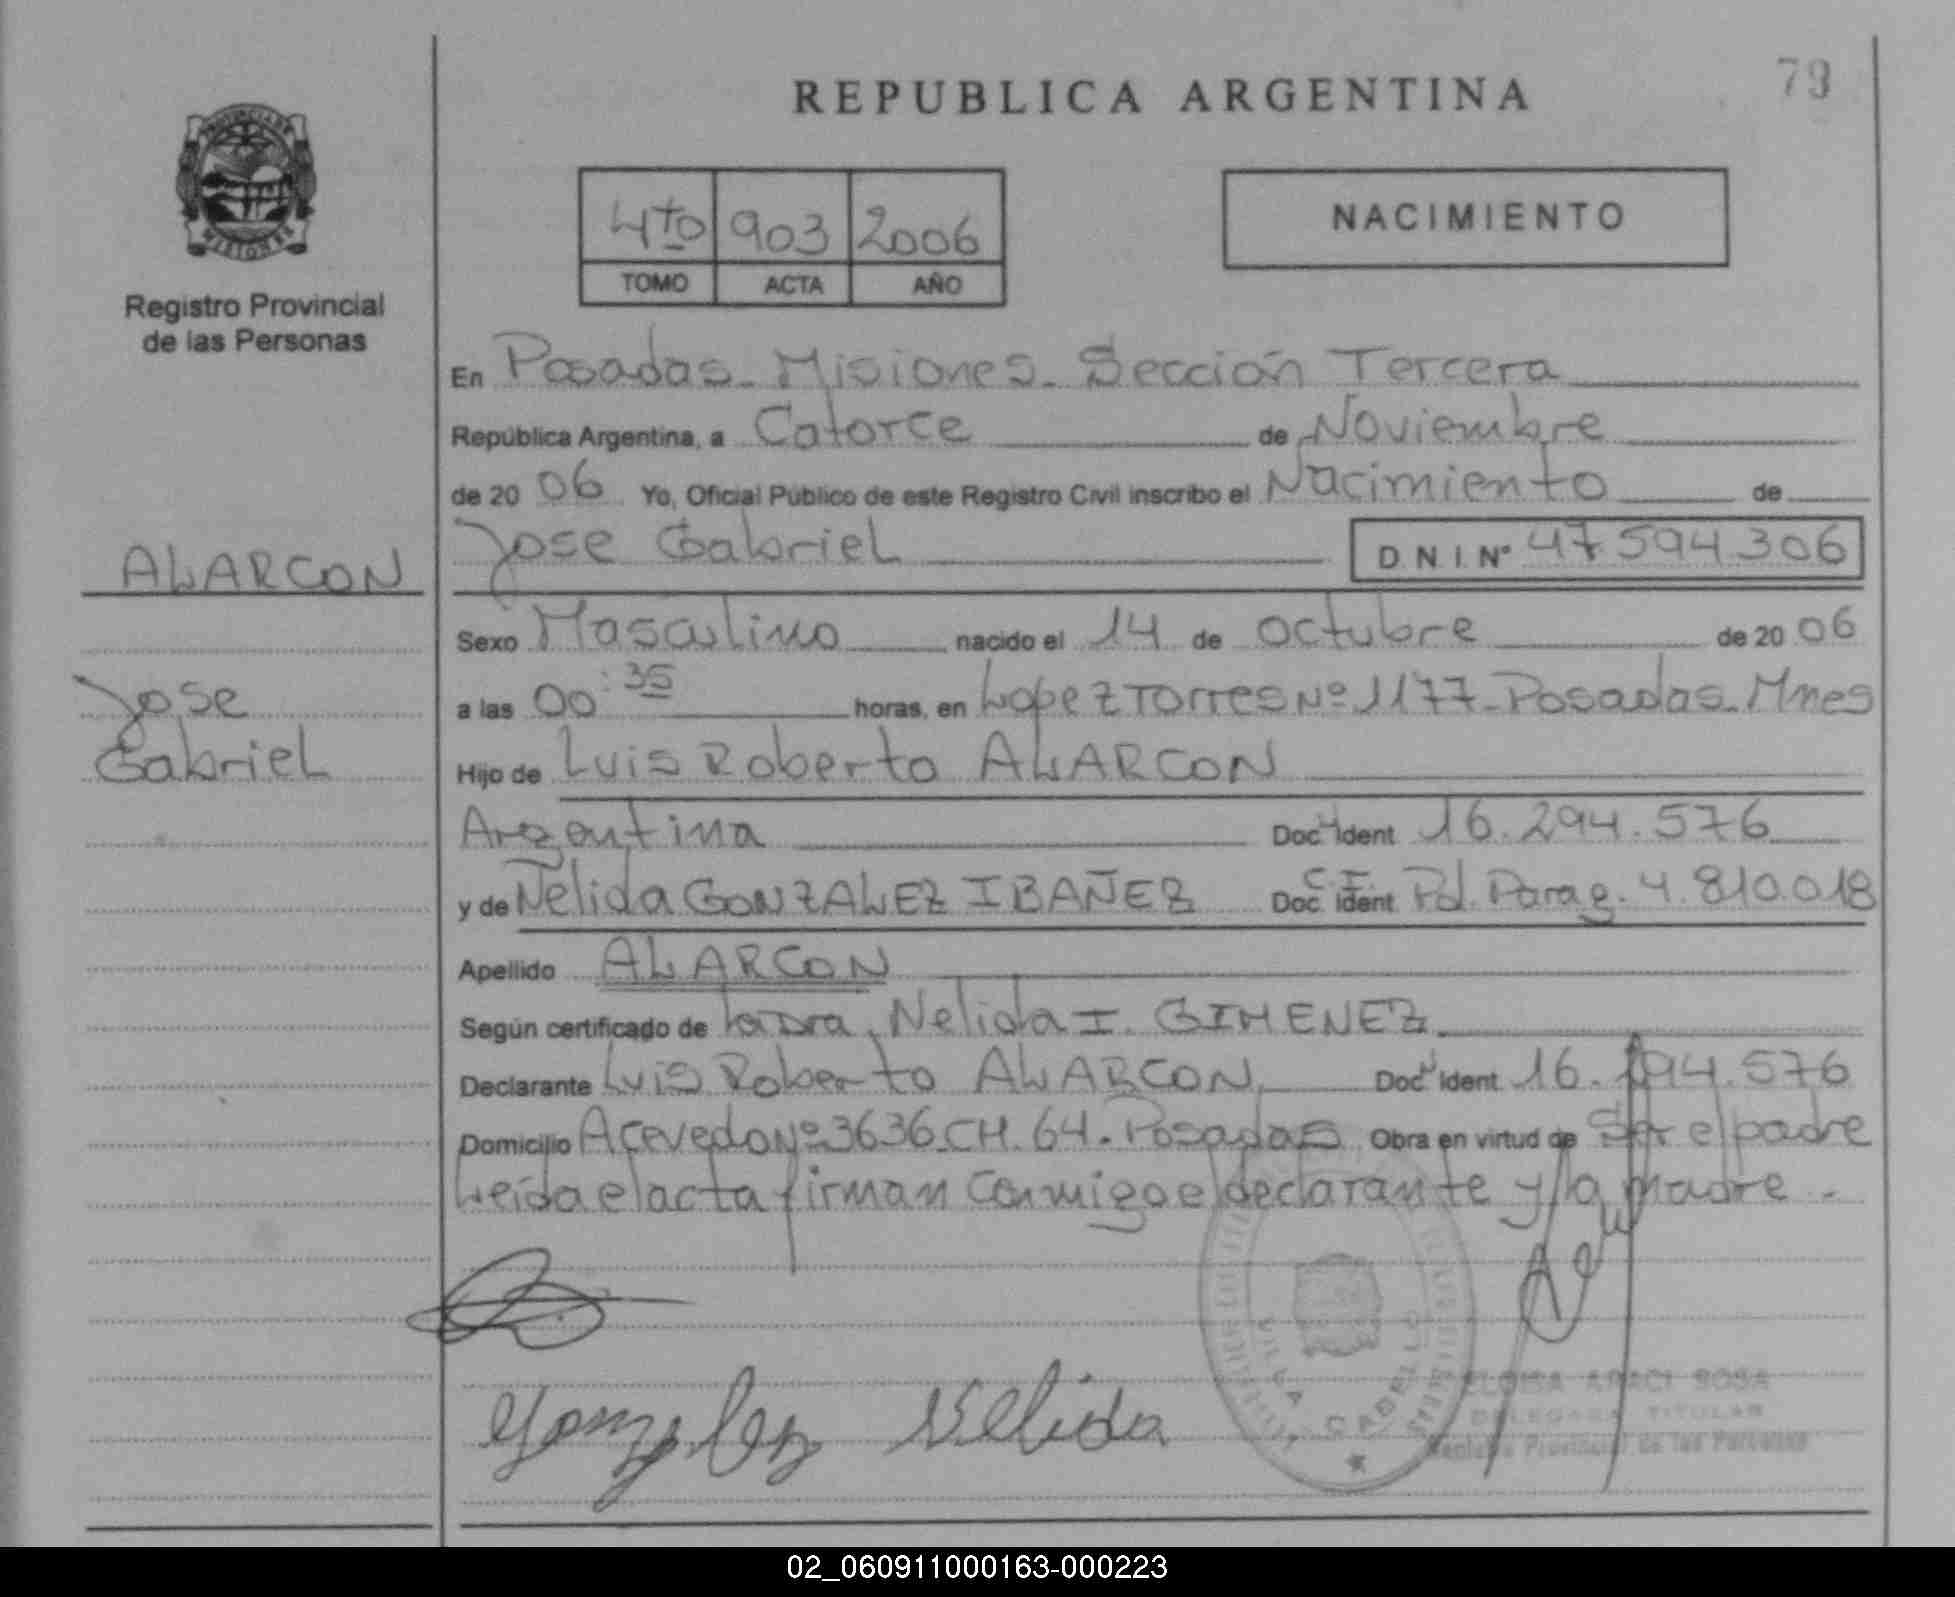 REPUBLICA ARGENTINA
79
PROVINCIA DE
MISIONES
Registro Provincial
de las Personas
4to 903 2006
TOMO ACTA AÑO
NACIMIENTO
En Posadas - Misiones - Sección Tercera
República Argentina, a Catorce de Noviembre
de 20 06 Yo, Oficial Público de este Registro Civil inscribo el Nacimiento de
Jose Gabriel D.N.I. Nº 47.594.306
ALARCON
Sexo Masculino nacido el 14 de Octubre de 20 06
Jose
Gabriel
a las 00:35 horas, en Lopez Torres Nº 1177 - Posadas - Mnes
Hijo de Luis Roberto ALARCON
Argentina Doc Ident 16.294.576
y de Nelida GONZALEZ IBAÑEZ Doc. C.I. Ident Pol. Parag. 4.810.018
Apellido ALARCON
Según certificado de la Dra, Nelida I. GIMENEZ
Declarante Luis Roberto ALARCON Doc Ident 16. 94.576
Domicilio Acevedo Nº 3636 CH. 64. Posadas Obra en virtud de Ser el padre
Leida el acta firman conmigo el declarante y la madre.
Gonzalez Nelida
VILLA CABELLO
ELOISA ARACI SOSA
DELEGADA TITULAR
Registro Provincial de las Personas
02_060911000163-000223